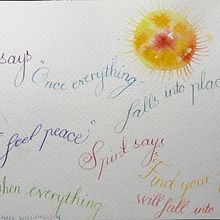 says
"Once everything
falls into plac
"feel peace"
Spirit says
Find your
when everything
will fall into